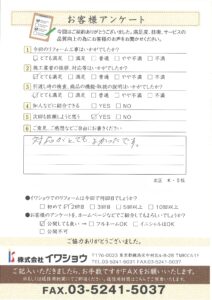 お客様アンケート
今回はご契約ありがとうございました。満足度、技術、サービスの
品質向上の為にお客様のお声をお聞かせください。
1 今回のリフォーム工事はいかがでしたか?
とても満足 満足 普通 やや不満 不満
2 施工業者の技術、対応等はいかがでしたか?
とても満足 満足 普通 やや不満 不満
3
とても満足 満足 普通 やや不満 不満
4 知人などに紹介できる YES NO
5 次回も依頼しようと思う YES NO
6 ご意見、ご感想などご自由にお書きください
対応がとてもよかったです。
●イワショウでのリフォームは何回目ですか?
初めて 2回目 3回目 5回以上 10回以上
●お客様のアンケートを、ホームページなどでご紹介してもよろしいでしょうか?
公開しても良い フルネームOK イニシャルはOK
公開不可
ご協力ありがとうございました。
株式会社イワショウ
ご記入いただきましたら、お手数ですがFAXをお願いいたします。
FAX.03-5241-5037